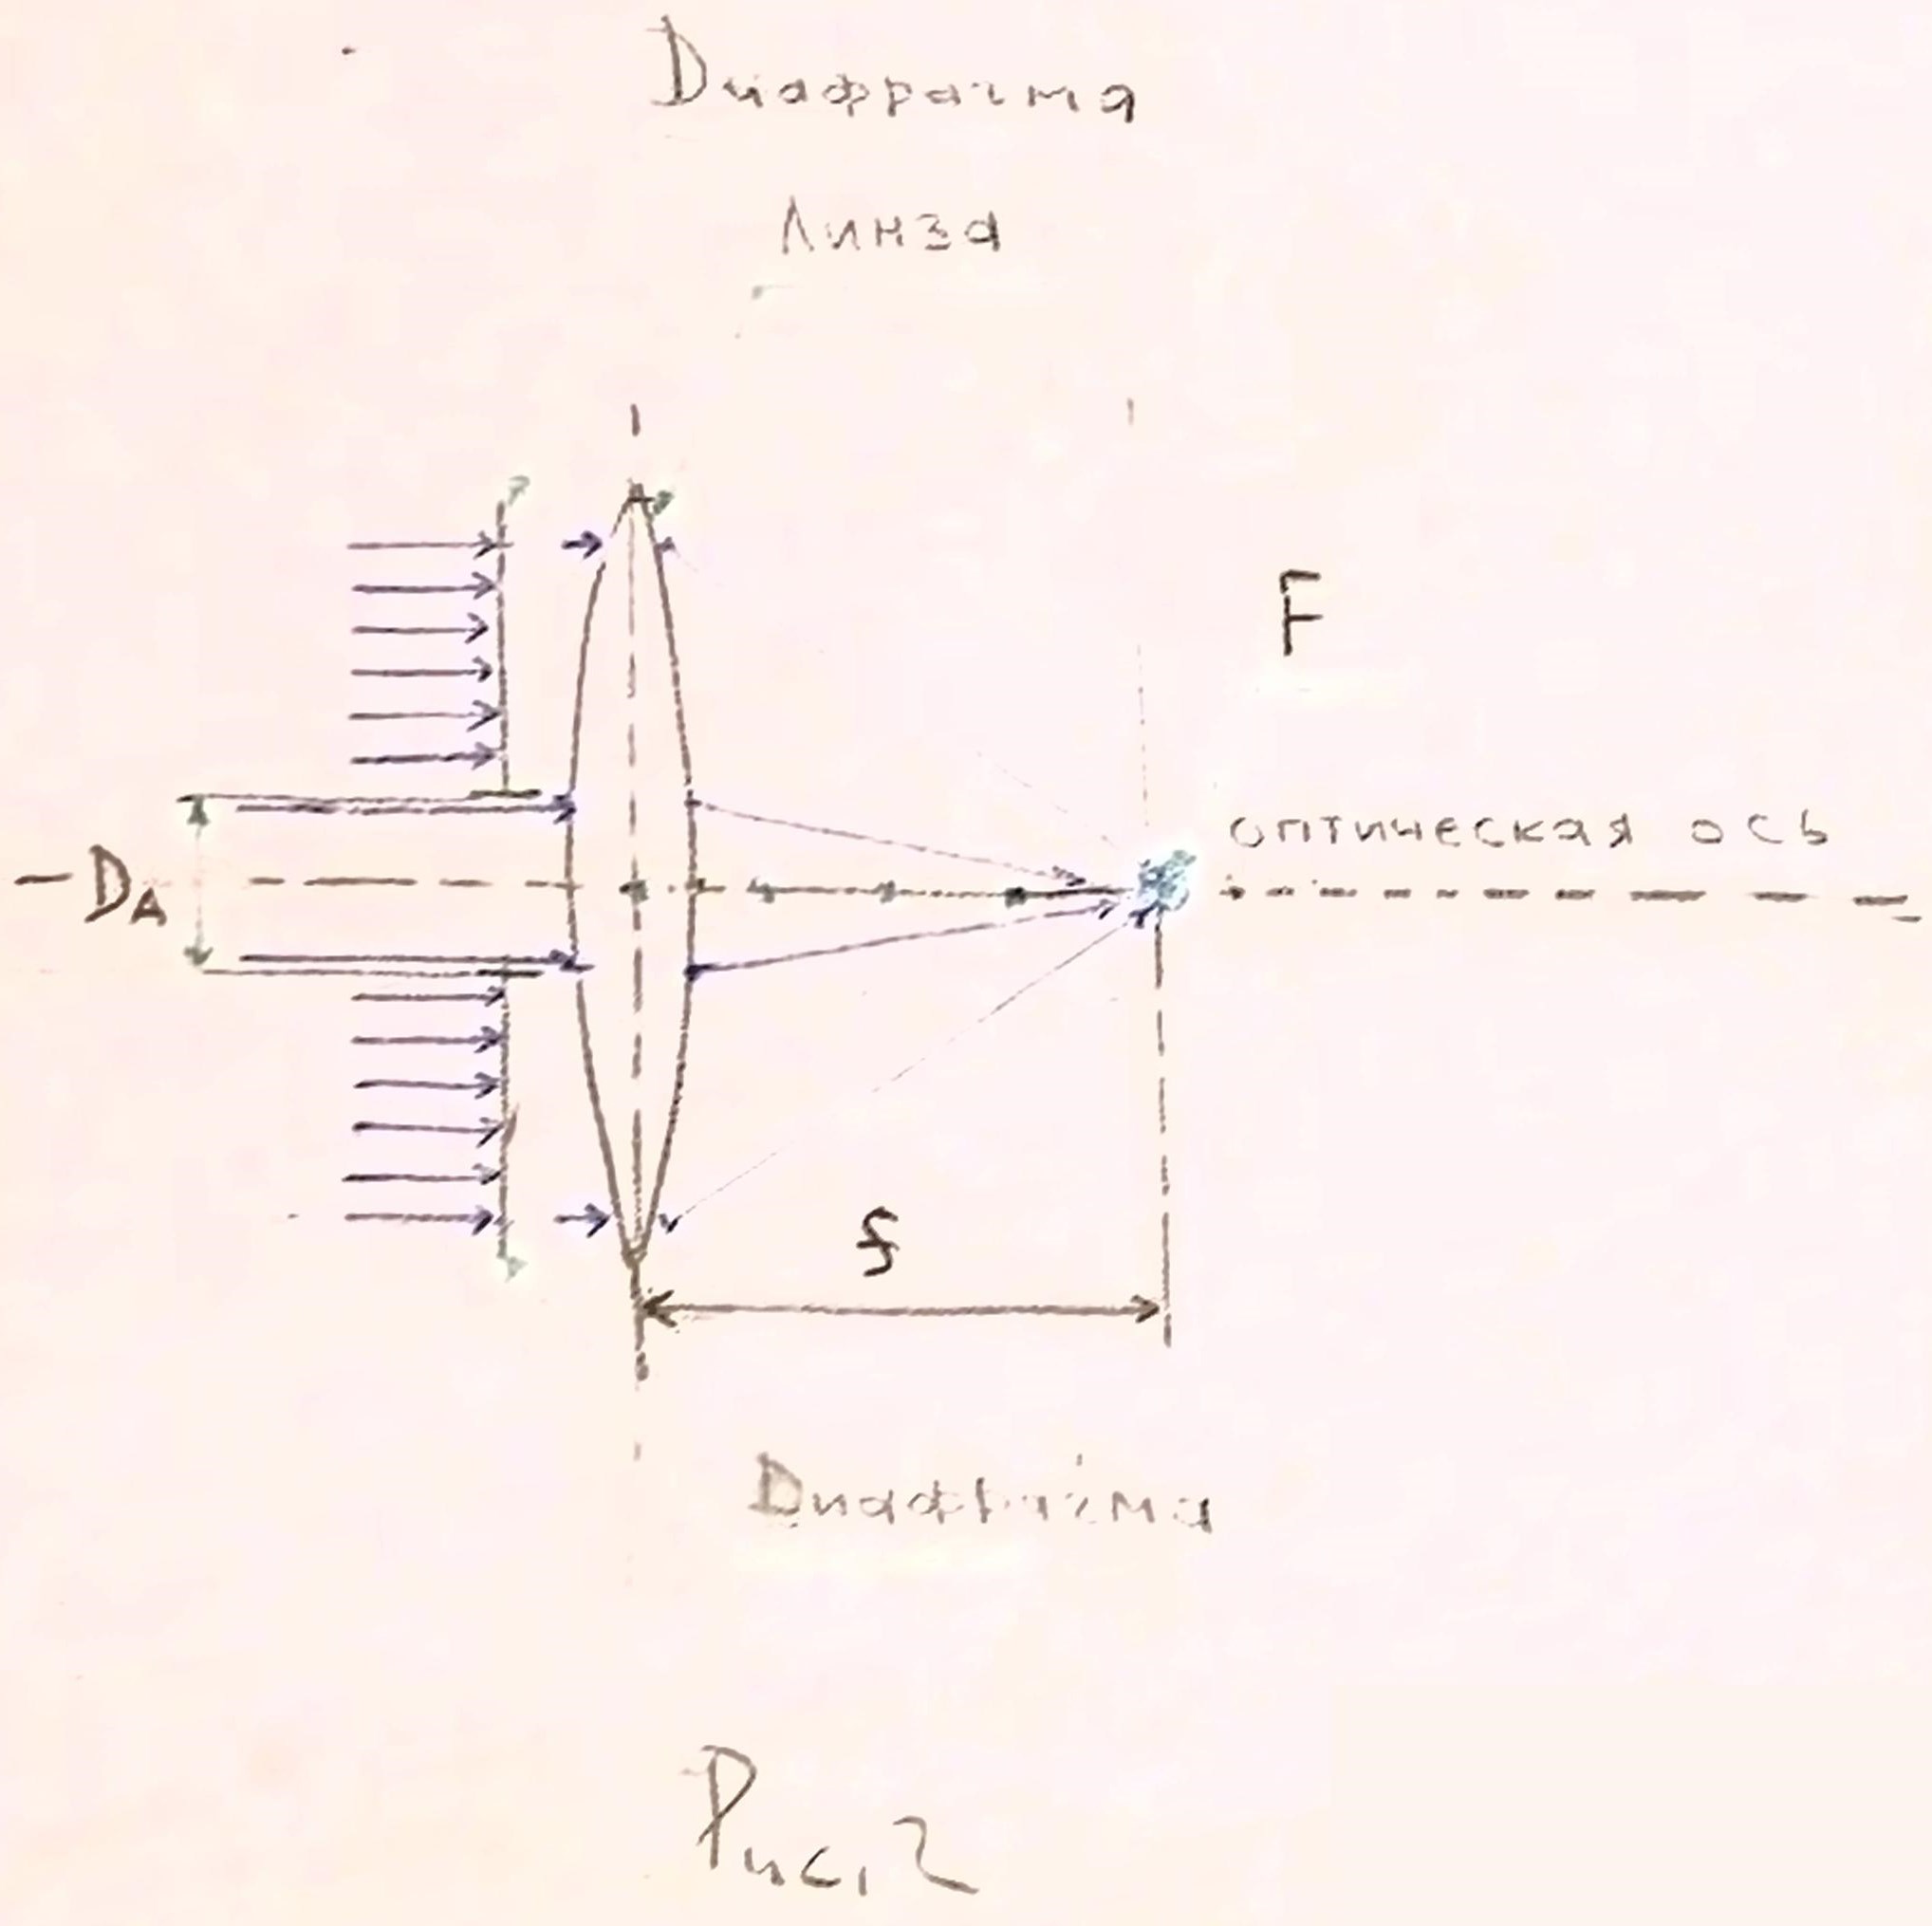 Диафрагма
Линза
F
оптическая ось
DA
f
Диафрагма
Рис, 2